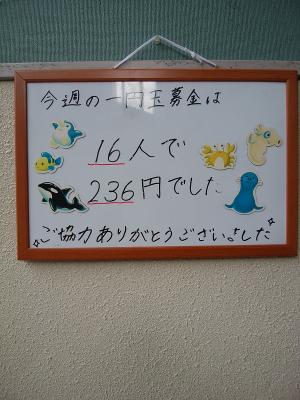 今週の一円玉募金は
16人で
236円でした
ご協力ありがとうございました